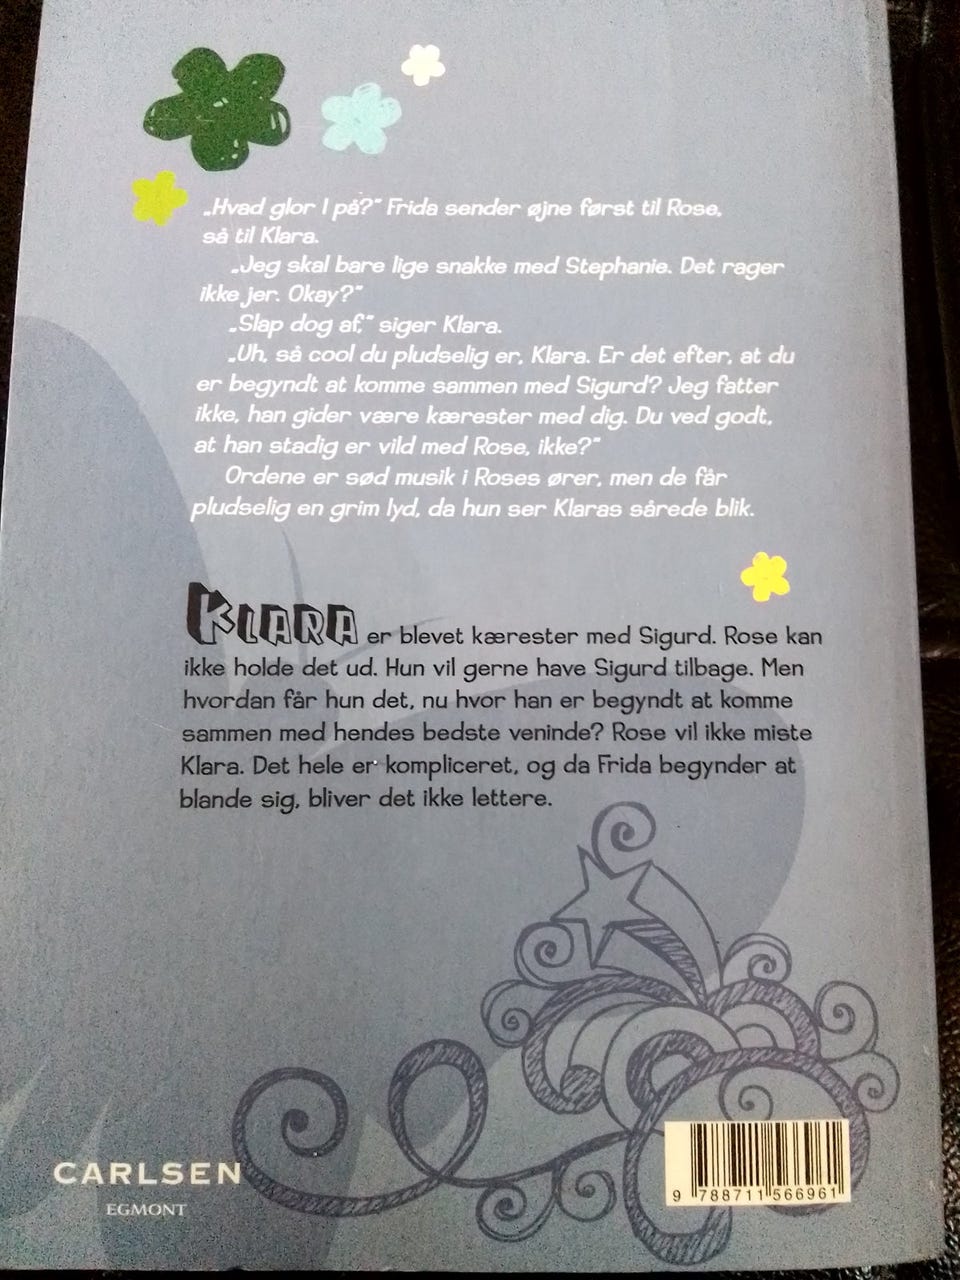 „Hvad glor I på?" Frida sender øjne først til Rose,
så til Klara.
„Jeg skal bare lige snakke med Stephanie. Det rager
ikke jer. Okay?"
„Slap dog af," siger Klara.
„Uh, så cool du pludselig er, Klara. Er det efter, at du
er begyndt at komme sammen med Sigurd? Jeg fatter
ikke, han gider være kærester med dig. Du ved godt,
at han stadig er vild med Rose, ikke?"
Ordene er sød musik i Roses ører, men de får
pludselig en grim lyd, da hun ser Klaras sårede blik.
KLARA er blevet kærester med Sigurd. Rose kan
ikke holde det ud. Hun vil gerne have Sigurd tilbage. Men
hvordan får hun det, nu hvor han er begyndt at komme
sammen med hendes bedste veninde? Rose vil ikke miste
Klara. Det hele er kompliceret, og da Frida begynder at
blande sig, bliver det ikke lettere.
CARLSEN
EGMONT
9 788711 566961